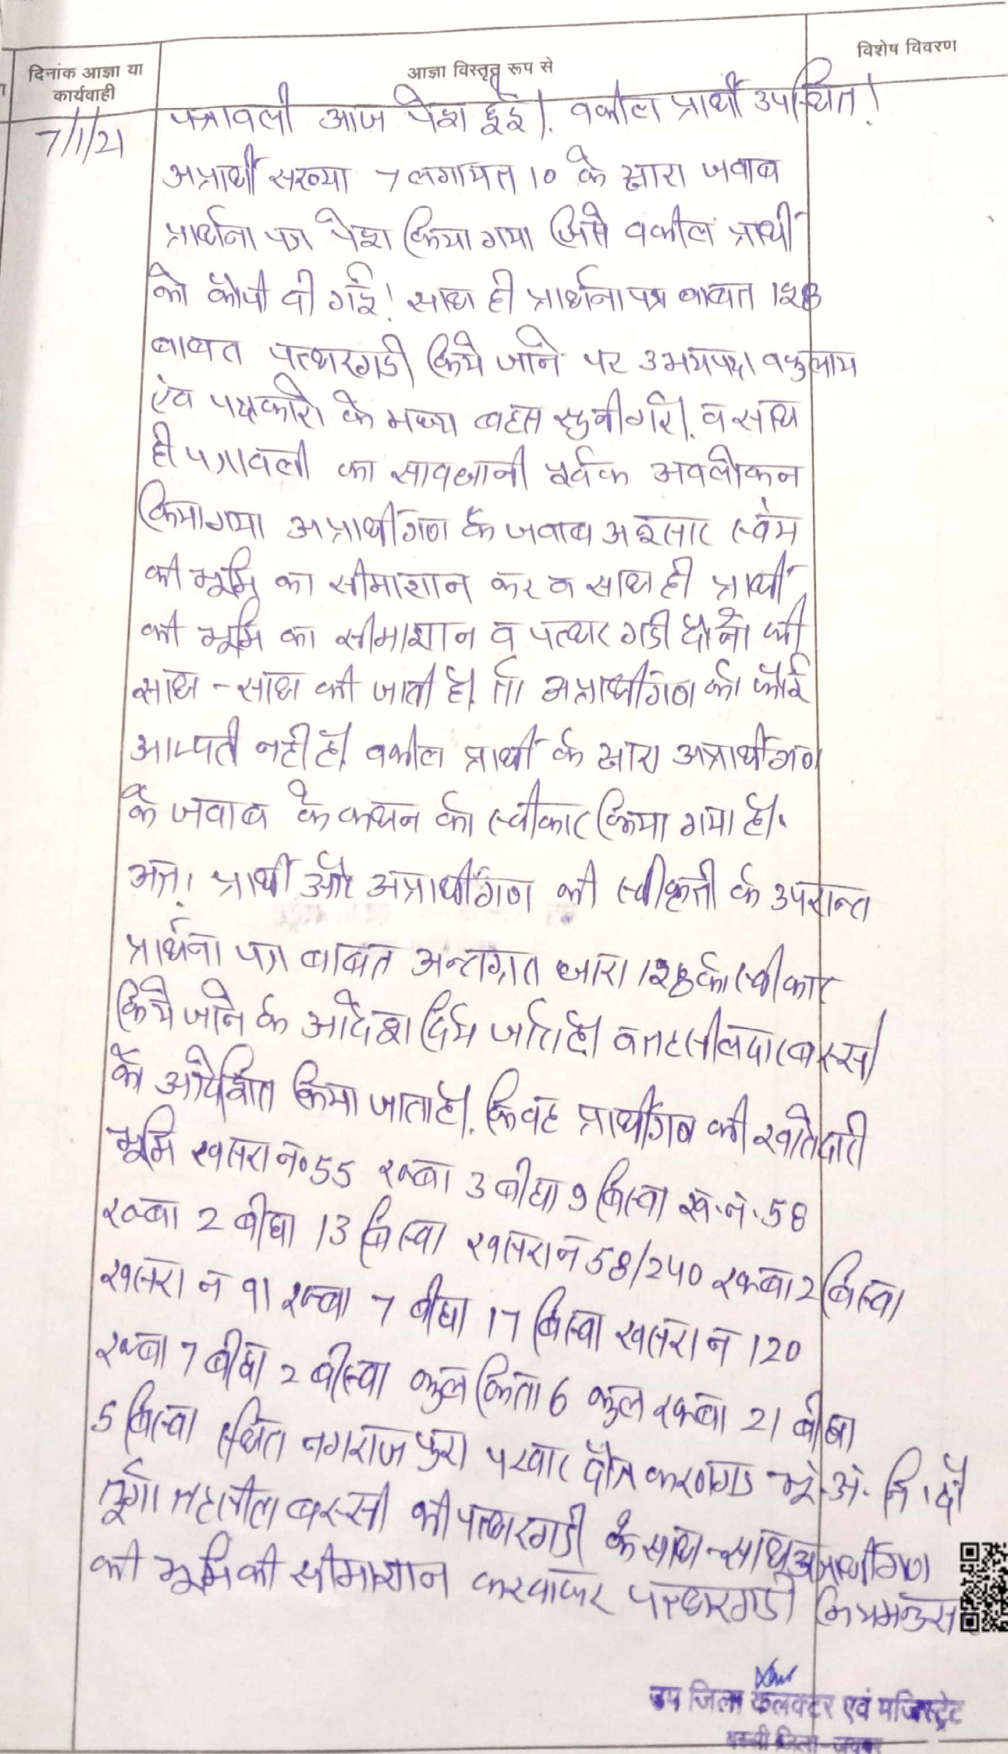 दिनांक आज्ञा या
कार्यवाही
आज्ञा विस्तृत रूप से
विशेष विवरण
7/1/21
पत्रावली आज पेश हुई। वकील प्रार्थी उपस्थित।
अप्रार्थी संख्या 7 लगायत 10 के द्वारा जवाब
प्रार्थना पत्र पेश किया गया जिसे वकील प्रार्थी
को कॉपी दी गई। साथ ही प्रार्थना पत्र बाबत 128
बाबत पत्थरगडी किये जाने पर उभयपक्ष वकुलाय
एंव पक्षकारो के मध्य बहस सुनी गई। व साथ
ही पत्रावली का सावधानी पूर्वक अवलोकन
किया गया अप्रार्थीगण के जवाब अनुसार स्वंय
की भूमि का सीमाज्ञान कर व साथ ही प्रार्थी
की भूमि का सीमाज्ञान व पत्थर गडी दोनो की
साथ - साथ की जाती है। तो अप्रार्थीगण को कोई
आपत्ती नही है। वकील प्रार्थी के द्वारा अप्रार्थीगण
के जवाब के कथन को स्वीकार किया गया है।
अतः प्रार्थी और अप्रार्थीगण की स्वीकृती के उपरान्त
प्रार्थना पत्र बाबत अन्तग्रत धारा 128 को स्वीकार
किये जाने के आदेश दिये जाते है। व तहसीलदार बस्सी
को आदेशित किया जाता है। कि वह प्रार्थीगण की खातेदारी
भूमि खसरा न० 55 रकबा 3 बीघा 9 बिस्वा ख.न. 58
रकबा 2 बीघा 13 बिस्वा खसरा न 58/240 रकबा 2 बिस्वा
खसरा न 91 रकबा 7 बीघा 17 बिस्वा खसरा न 120
रकबा 7 बीघा 2 बीस्वा कुल किता 6 कुल रकबा 21 बीघा
5 बिस्वा स्थित नगराजपुरा पटवार क्षेत्र करणगढ भू.अ. नि. क्षे
तूंगा तहसील बस्सी की पत्थरगडी के साथ-साथ अप्रार्थीगण
की भूमि की सीमाज्ञान करवाकर पत्थरगडी नियमानुसा
उप जिला कलक्टर एवं मजिस्ट्रेट
बस्सी जिला-जयपुर